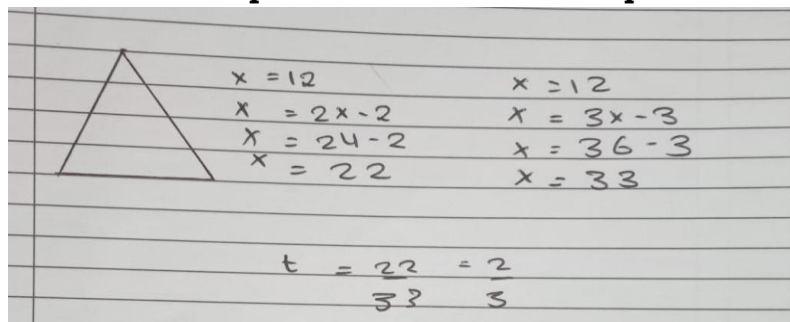 x = 12
x = 2x - 2
x = 24 - 2
x = 22
x = 12
x = 3x - 3
x = 36 - 3
x = 33
t = 22/33 = 2/3